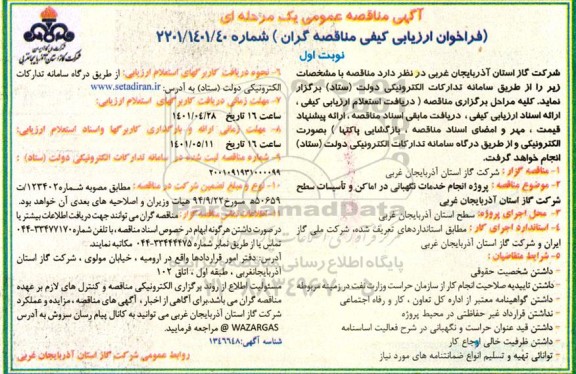 آگهی مناقصه عمومی یک مرحله ای
(فراخوان ارزیابی کیفی مناقصه گران ) شماره ۲۲۰۱/۱۴۰۱/۴۰
نوبت اول
شرکت گاز استان آذربایجان غربی در نظر دارد مناقصه با مشخصات
زیر را از طریق سامانه تدارکات الکترونیکی دولت (ستاد) برگزار
نماید. کلیه مراحل برگزاری مناقصه ( دریافت استعلام ارزیابی کیفی ،
ارائه اسناد ارزیابی کیفی ، دریافت مابقی اسناد مناقصه ، ارائه پیشنهاد
قیمت ، مهر و امضای اسناد مناقصه ، بازگشایی پاکتها ) بصورت
الکترونیکی و از طریق درگاه سامانه تدارکات الکترونیکی دولت (ستاد)
انجام خواهد گرفت.
۱- مناقصه گزار : شرکت گاز استان آذربایجان غربی
۲- موضوع مناقصه : پروژه انجام خدمات نگهبانی در اماکن و تأسیسات سطح
شرکت گاز استان آذربایجان غربی
۳- محل اجرای پروژه: سطح استان آذربایجان غربی
۴- استاندارد اجرای کار : مطابق استانداردهای تعریف شده، شرکت ملی گاز
ایران و شرکت گاز استان آذربایجان غربی
۵- شرایط متقاضیان :
– داشتن شخصیت حقوقی
– داشتن تاییدیه صلاحیت انجام کار از سازمان حراست وزارت نفت در زمینه مربوطه
– داشتن گواهینامه معتبر از اداره کل تعاون ، کار و رفاه اجتماعی
– نداشتن قرارداد غیر حفاظتی در محیط پروژه
– داشتن قید عنوان حراست و نگهبانی در شرح فعالیت اساسنامه
– داشتن ظرفیت خالی ارجاع کار
– توانائی تهیه و تسلیم انواع ضمانتنامه های مورد نیاز
۶- نحوه دریافت کاربرگهای استعلام ارزیابی: از طریق درگاه سامانه تدارکات
الکترونیکی دولت (ستاد) به آدرس: www.setadiran.ir
۷- مهلت زمانی دریافت کاربرگهای استعلام ارزیابی:
ساعت ۱۶ تاریخ ۱۴۰۱/۰۴/۲۸
۸- مهلت زمانی ارائه و بارگذاری کاربرگها واسناد استعلام ارزیابی:
ساعت ۱۶ تاریخ ۱۴۰۱/۰۵/۱۱
۹- شماره مناقصه ثبت شده در سامانه تدارکات الکترونیکی دولت (ستاد) :
۲۰۰۱۰۹۱۹۳۱۰۰۰۰۹۹
۱۰- نوع و مبلغ تضمین شرکت در مناقصه : مطابق مصوبه شماره۱۲۳۴۰۲/ت
۵۰۶۵۹ه مورخ۹۴/۹/۲۲ هیات وزیران و اصلاحیه های بعدی آن خواهد بود.
مناقصه گران می توانند جهت دریافت اطلاعات بیشتر یا
در صورت داشتن هرگونه ابهام در خصوص اسناد مناقصه، با تلفن شماره ۳۳۴۷۷۱۷۰-۰۴۴
تماس یا از طریق نمابر شماره ۳۳۴۴۴۴۷۵-۰۴۴ مکاتبه نمایند.
آدرس: دفتر امور قراردادها واقع در ارومیه ، خیابان مولوی ، شرکت گاز استان
آذربایجانغربی ، طبقه اول ، اتاق ۱۰۲
مسئولیت اطلاع از روند برگزاری الکترونیکی مناقصه و کنترل های لازم بر عهده
مناقصه گران می باشد.برای آگاهی از اخبار ، آگهی های مناقصه ، مزایده و عملکرد
شرکت گاز استان آذربایجان غربی می توانید به کانال پیام رسان سروش به آدرس
WAZARGAS @ مراجعه فرمایید.
شناسه آگهی: ۱۳۴۶۶۴۸
روابط عمومی شرکت گاز استان آذربایجان غربی